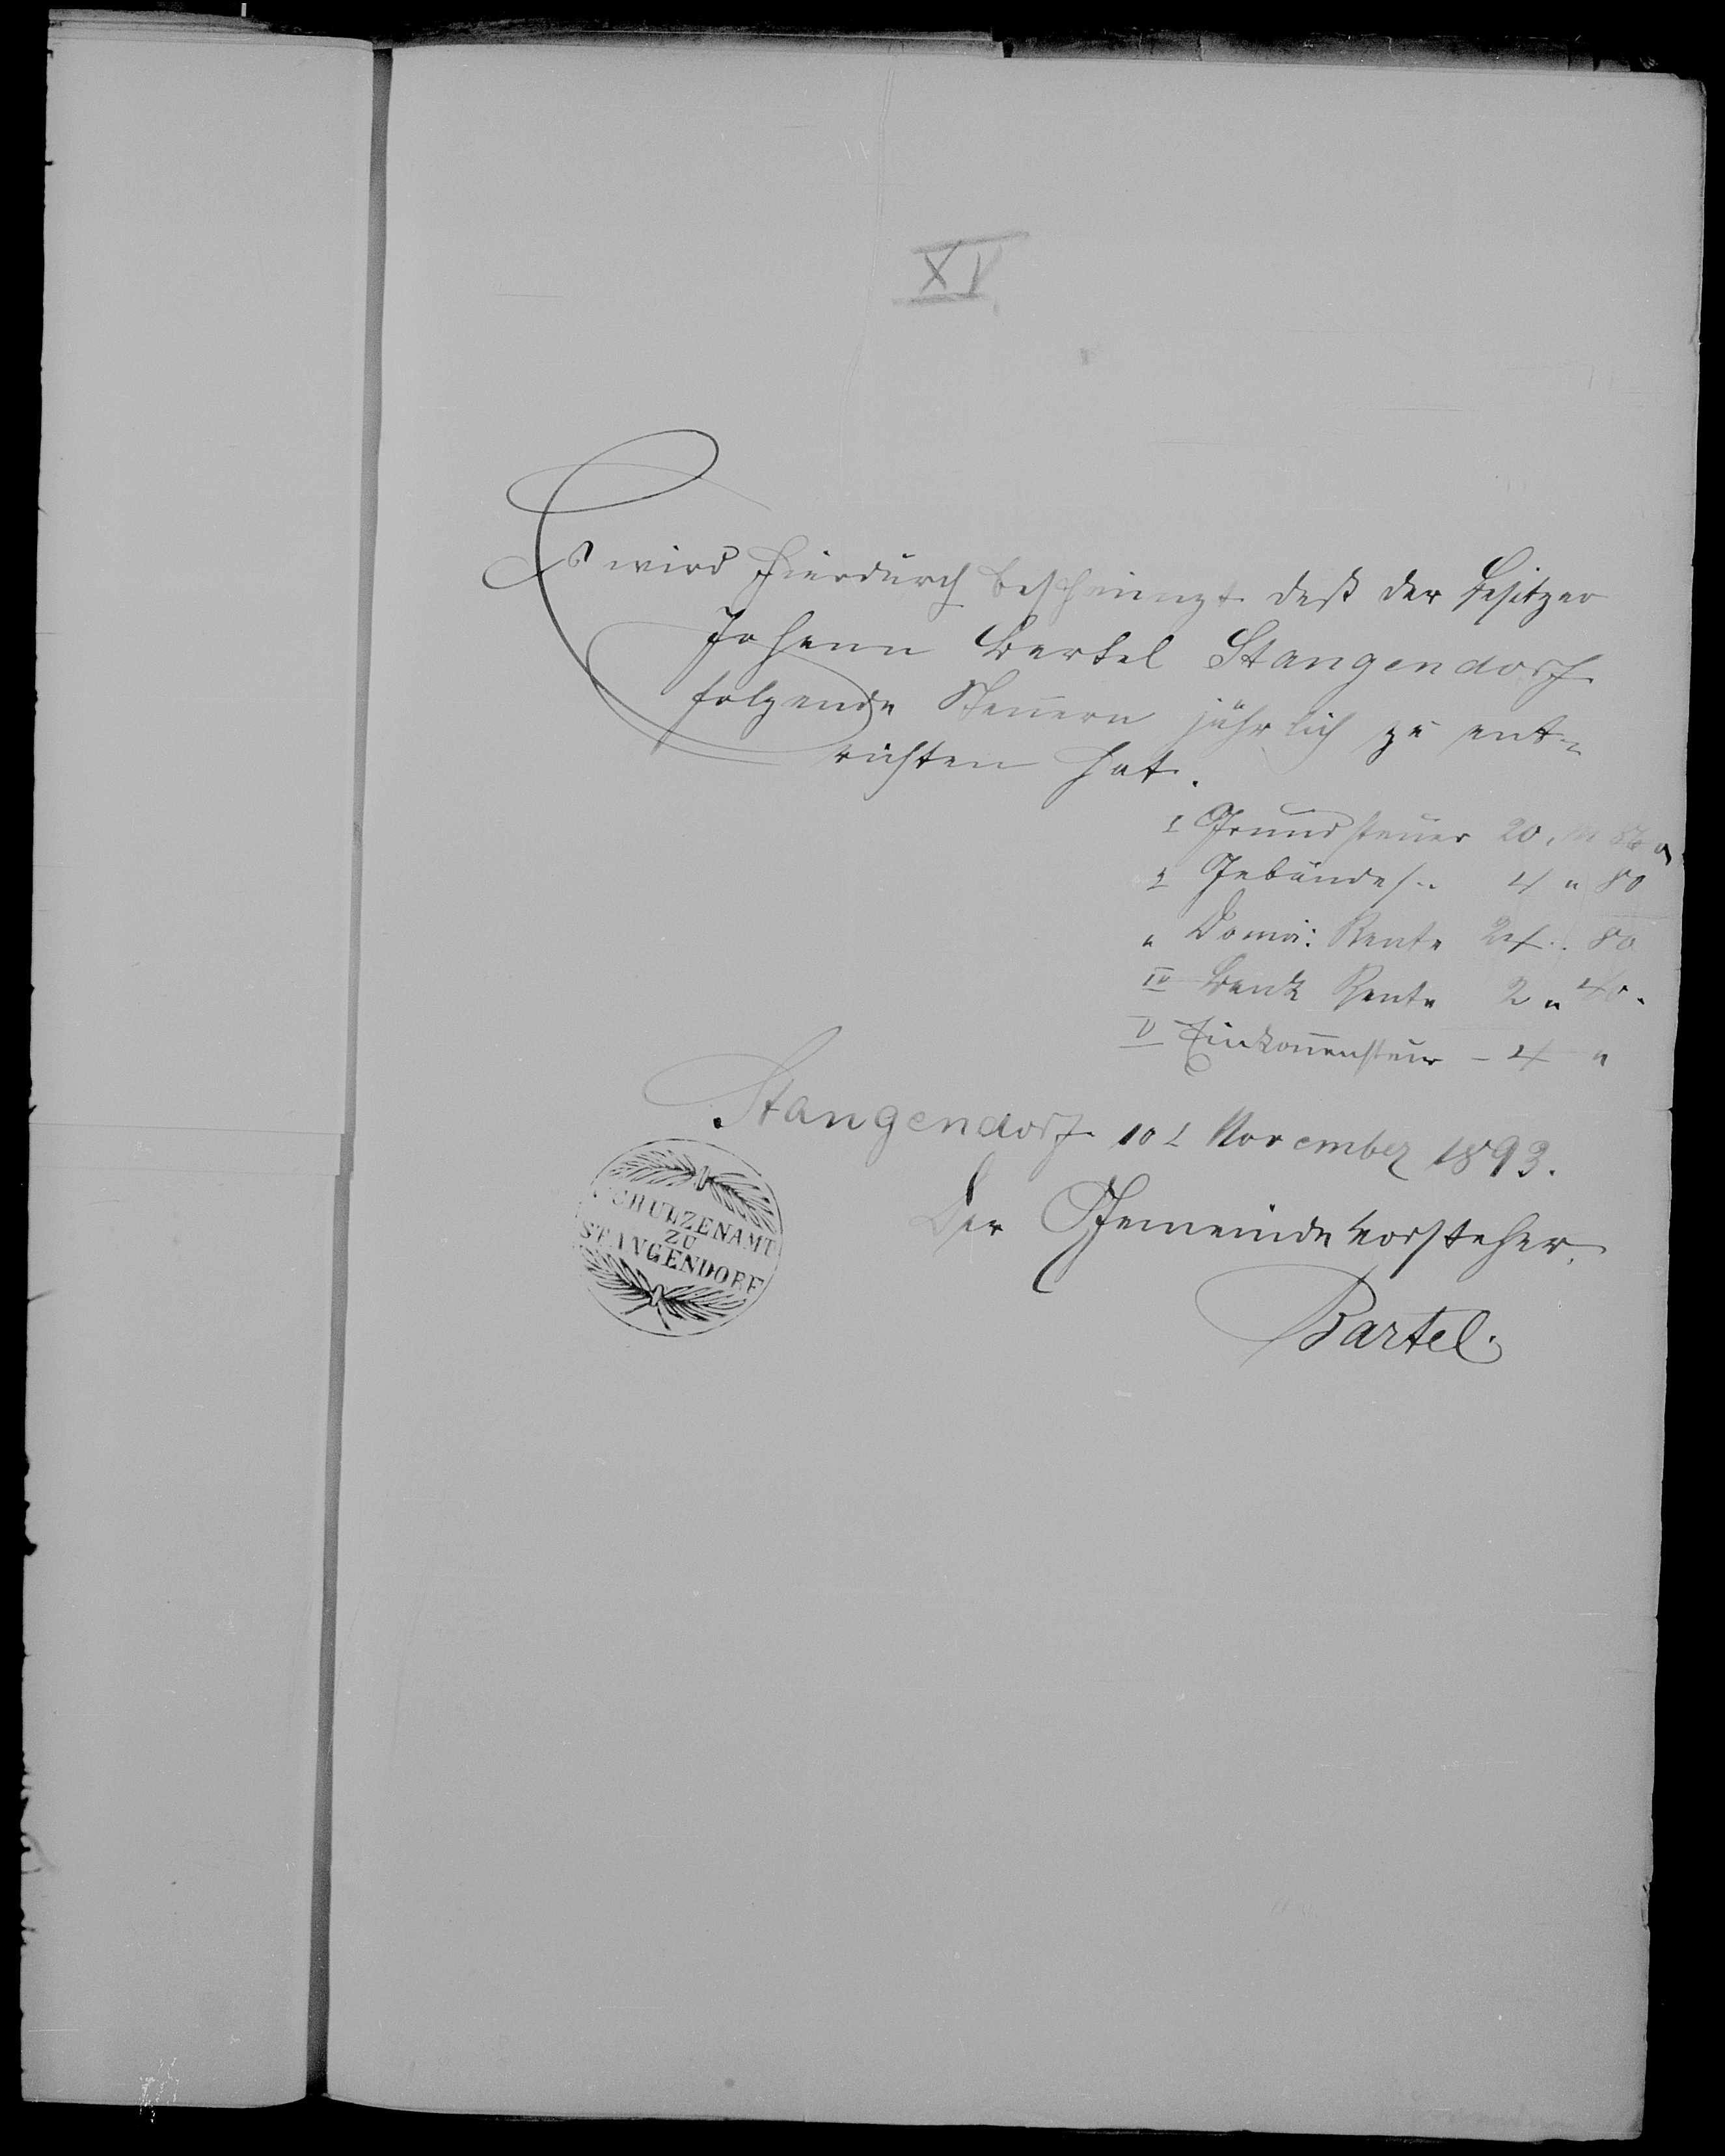 XV
Es wird hierdurch bescheinigt daß der Besitzer
Johann Bartel Stangendorf
folgende Steuern jährlich zu ent-
richten hat.
I Grundsteuer 20. M 86
Gebäudes.. 4 " 80
" Domä: Rente 24.. 80
IV Bank Rente 2 " 40.
V Einkommensteur - 4 "
Stangendorf 10 t November 1893.
SCHULZENAMT
ZU
STANGENDORF
Der Gemeindevorsteher.
Bartel.